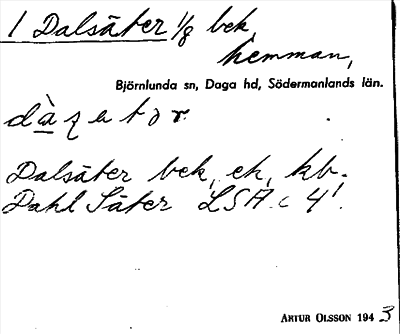 1 Dalsäter 1/8 bek,
hemman,
Björnlunda sn, Daga hd, Södermanlands län.
Dalsäter bek, ek, kb.
Dahl Säter LSA c 4'.
ARTUR OLSSON 1943